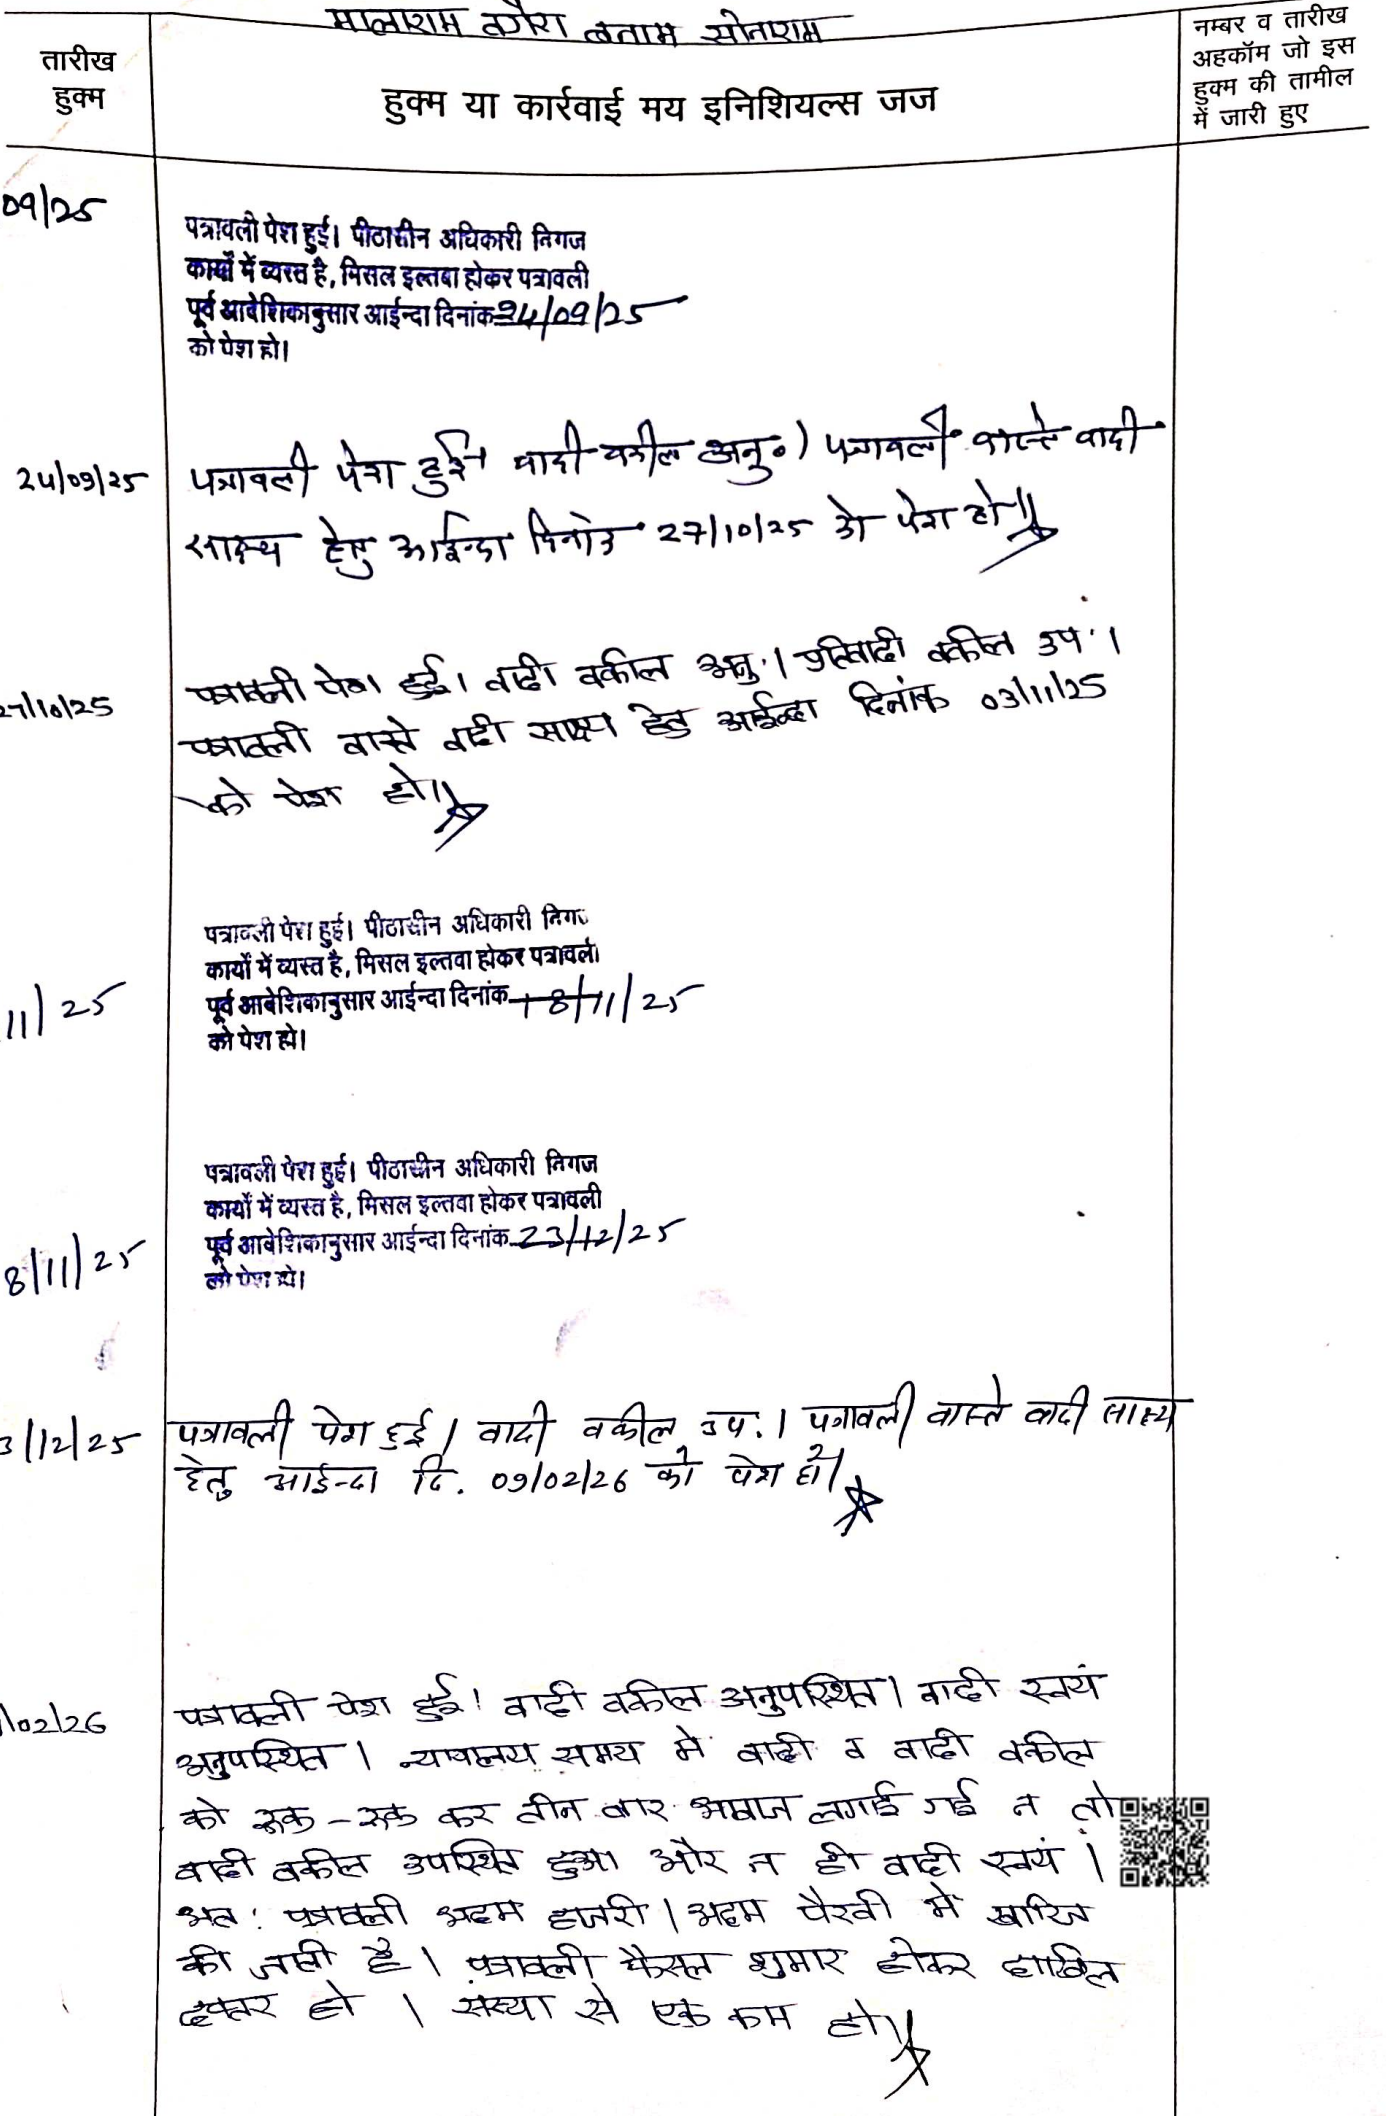 मालाराम वगैरा बनाम सोनाराम
तारीख
हुक्म
हुक्म या कार्रवाई मय इनिशियल्स जज
नम्बर व तारीख
अहकॉम जो इस
हुक्म की तामील
में जारी हुए
09/25
पत्रावली पेश हुई। पीठासीन अधिकारी निगज
कार्यों में व्यस्त है, मिसल इल्तवा होकर पत्रावली
पूर्व आदेशिकानुसार आईन्दा दिनांक 24/09/25
को पेश हो।
24/09/25
पत्रावली पेश हुई। वादी वकील अनु०। पत्रावली वास्ते वादी
साक्ष्य हेतु आईन्दा दिनांक 27/10/25 को पेश हो॥
27/10/25
पत्रावली पेश हुई। वादी वकील अनु.। प्रतिवादी वकील उप.।
पत्रावली वास्ते वादी साक्ष्य हेतु आईन्दा दिनांक 03/11/25
को पेश हो॥
11/25
पत्रावली पेश हुई। पीठासीन अधिकारी निगज
कार्यों में व्यस्त है, मिसल इल्तवा होकर पत्रावली
पूर्व आदेशिकानुसार आईन्दा दिनांक 18/11/25
को पेश हो।
8/11/25
पत्रावली पेश हुई। पीठासीन अधिकारी निगज
कार्यों में व्यस्त है, मिसल इल्तवा होकर पत्रावली
पूर्व आदेशिकानुसार आईन्दा दिनांक 23/12/25
को पेश हो।
3/12/25
पत्रावली पेश हुई। वादी वकील उप.। पत्रावली वास्ते वादी साक्ष्य
हेतु आईन्दा दि. 09/02/26 को पेश हो।
/02/26
पत्रावली पेश हुई। वादी वकील अनुपस्थित। वादी स्वयं
अनुपस्थित। न्यायालय समय में वादी व वादी वकील
को रूक-रूक कर तीन बार आवाज लगाई गई न तो
वादी वकील उपस्थित हुआ और न ही वादी स्वयं।
अतः पत्रावली अदम हाजरी। अदम पैरवी में खारिज
की जाती है। पत्रावली फैसल शुमार होकर दाखिल
दफ्तर हो। संख्या से एक कम हो॥